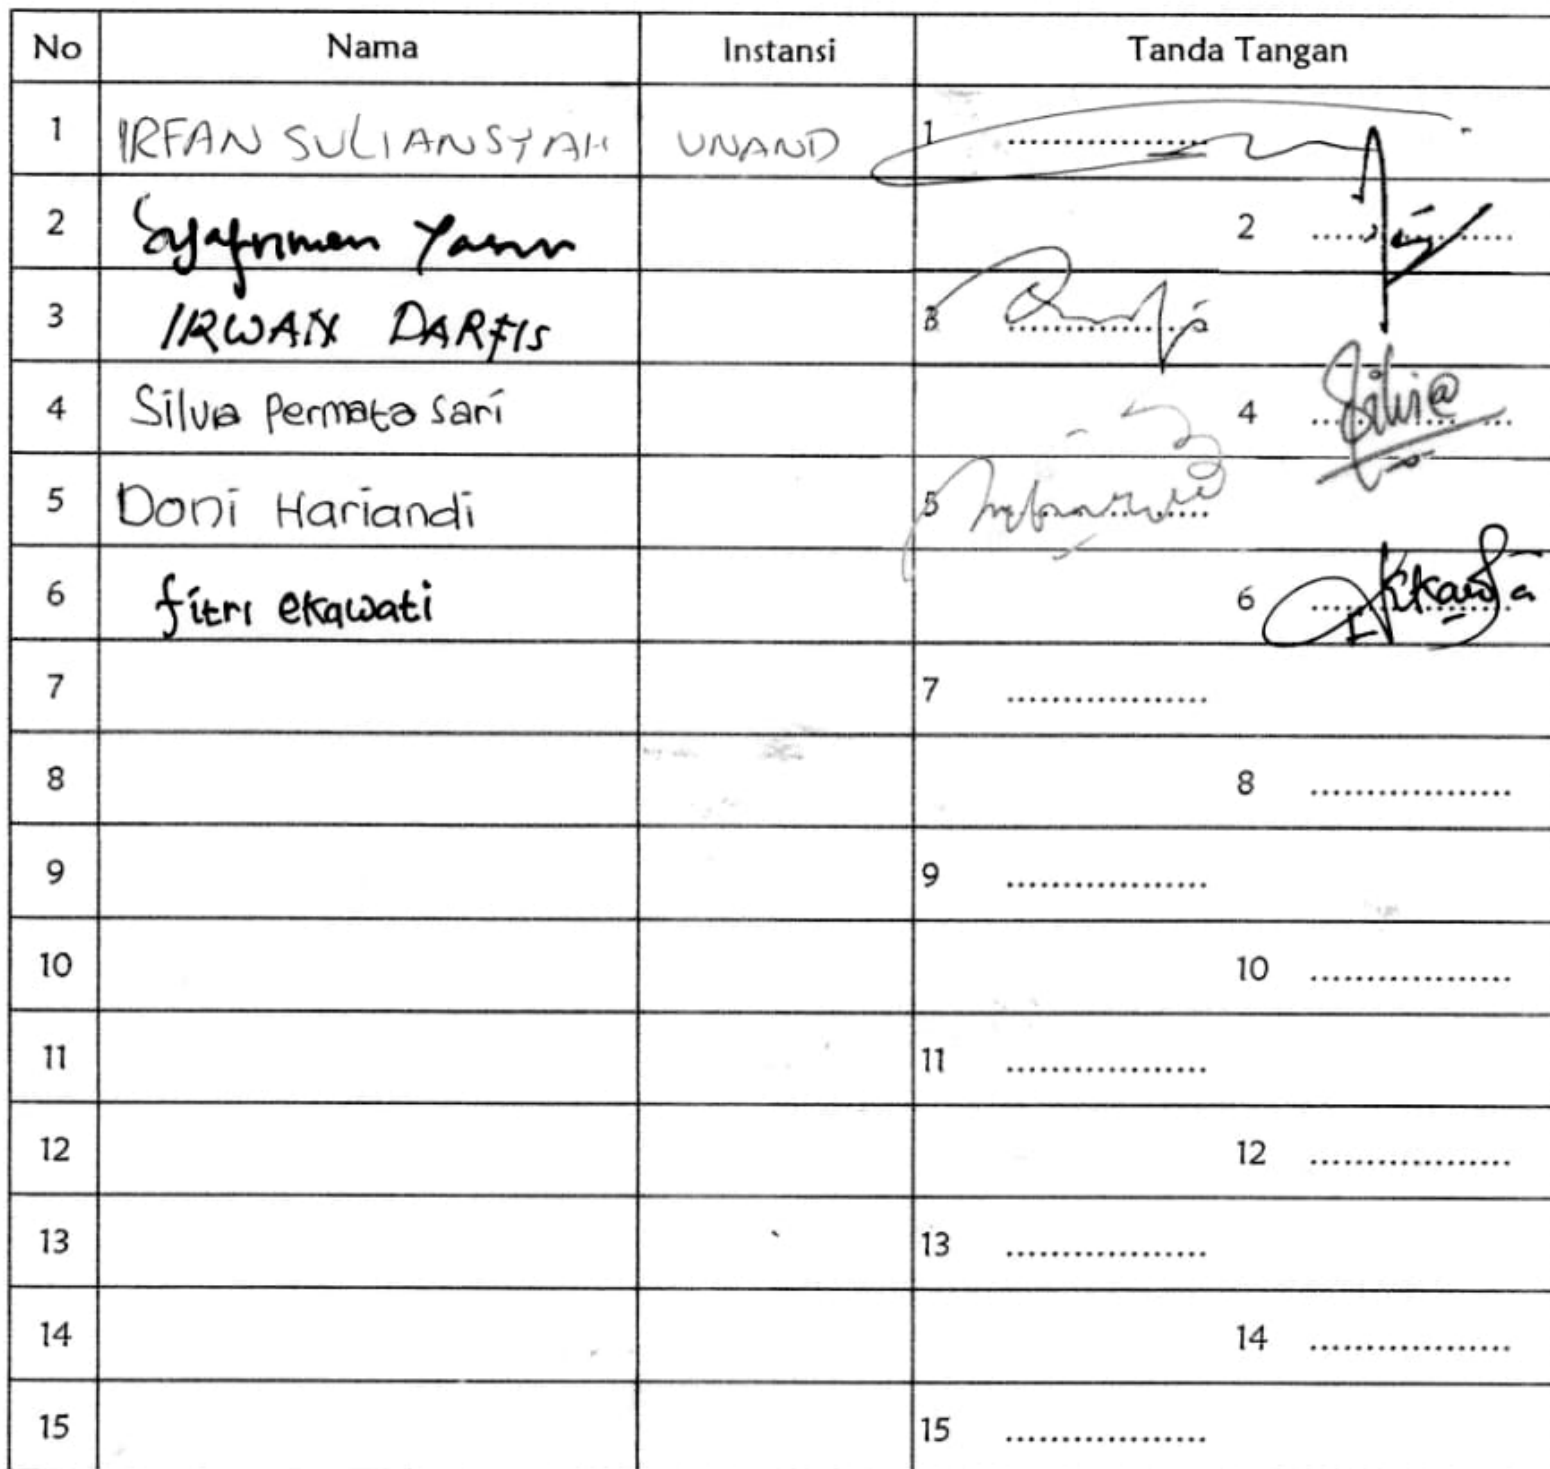 No Nama Instansi Tanda Tangan
1 IRFAN SULIANSYAH UNAND 1 ..................
2 Syafrimen Yasin 2 ..................
3 IRWAN DARFIS 3 ..................
4 Silvia Permata Sari 4 ..................
5 Doni Hariandi 5 ..................
6 fitri ekawati 6 ..................
7 7 ..................
8 8 ..................
9 9 ..................
10 10 ..................
11 11 ..................
12 12 ..................
13 13 ..................
14 14 ..................
15 15 ..................